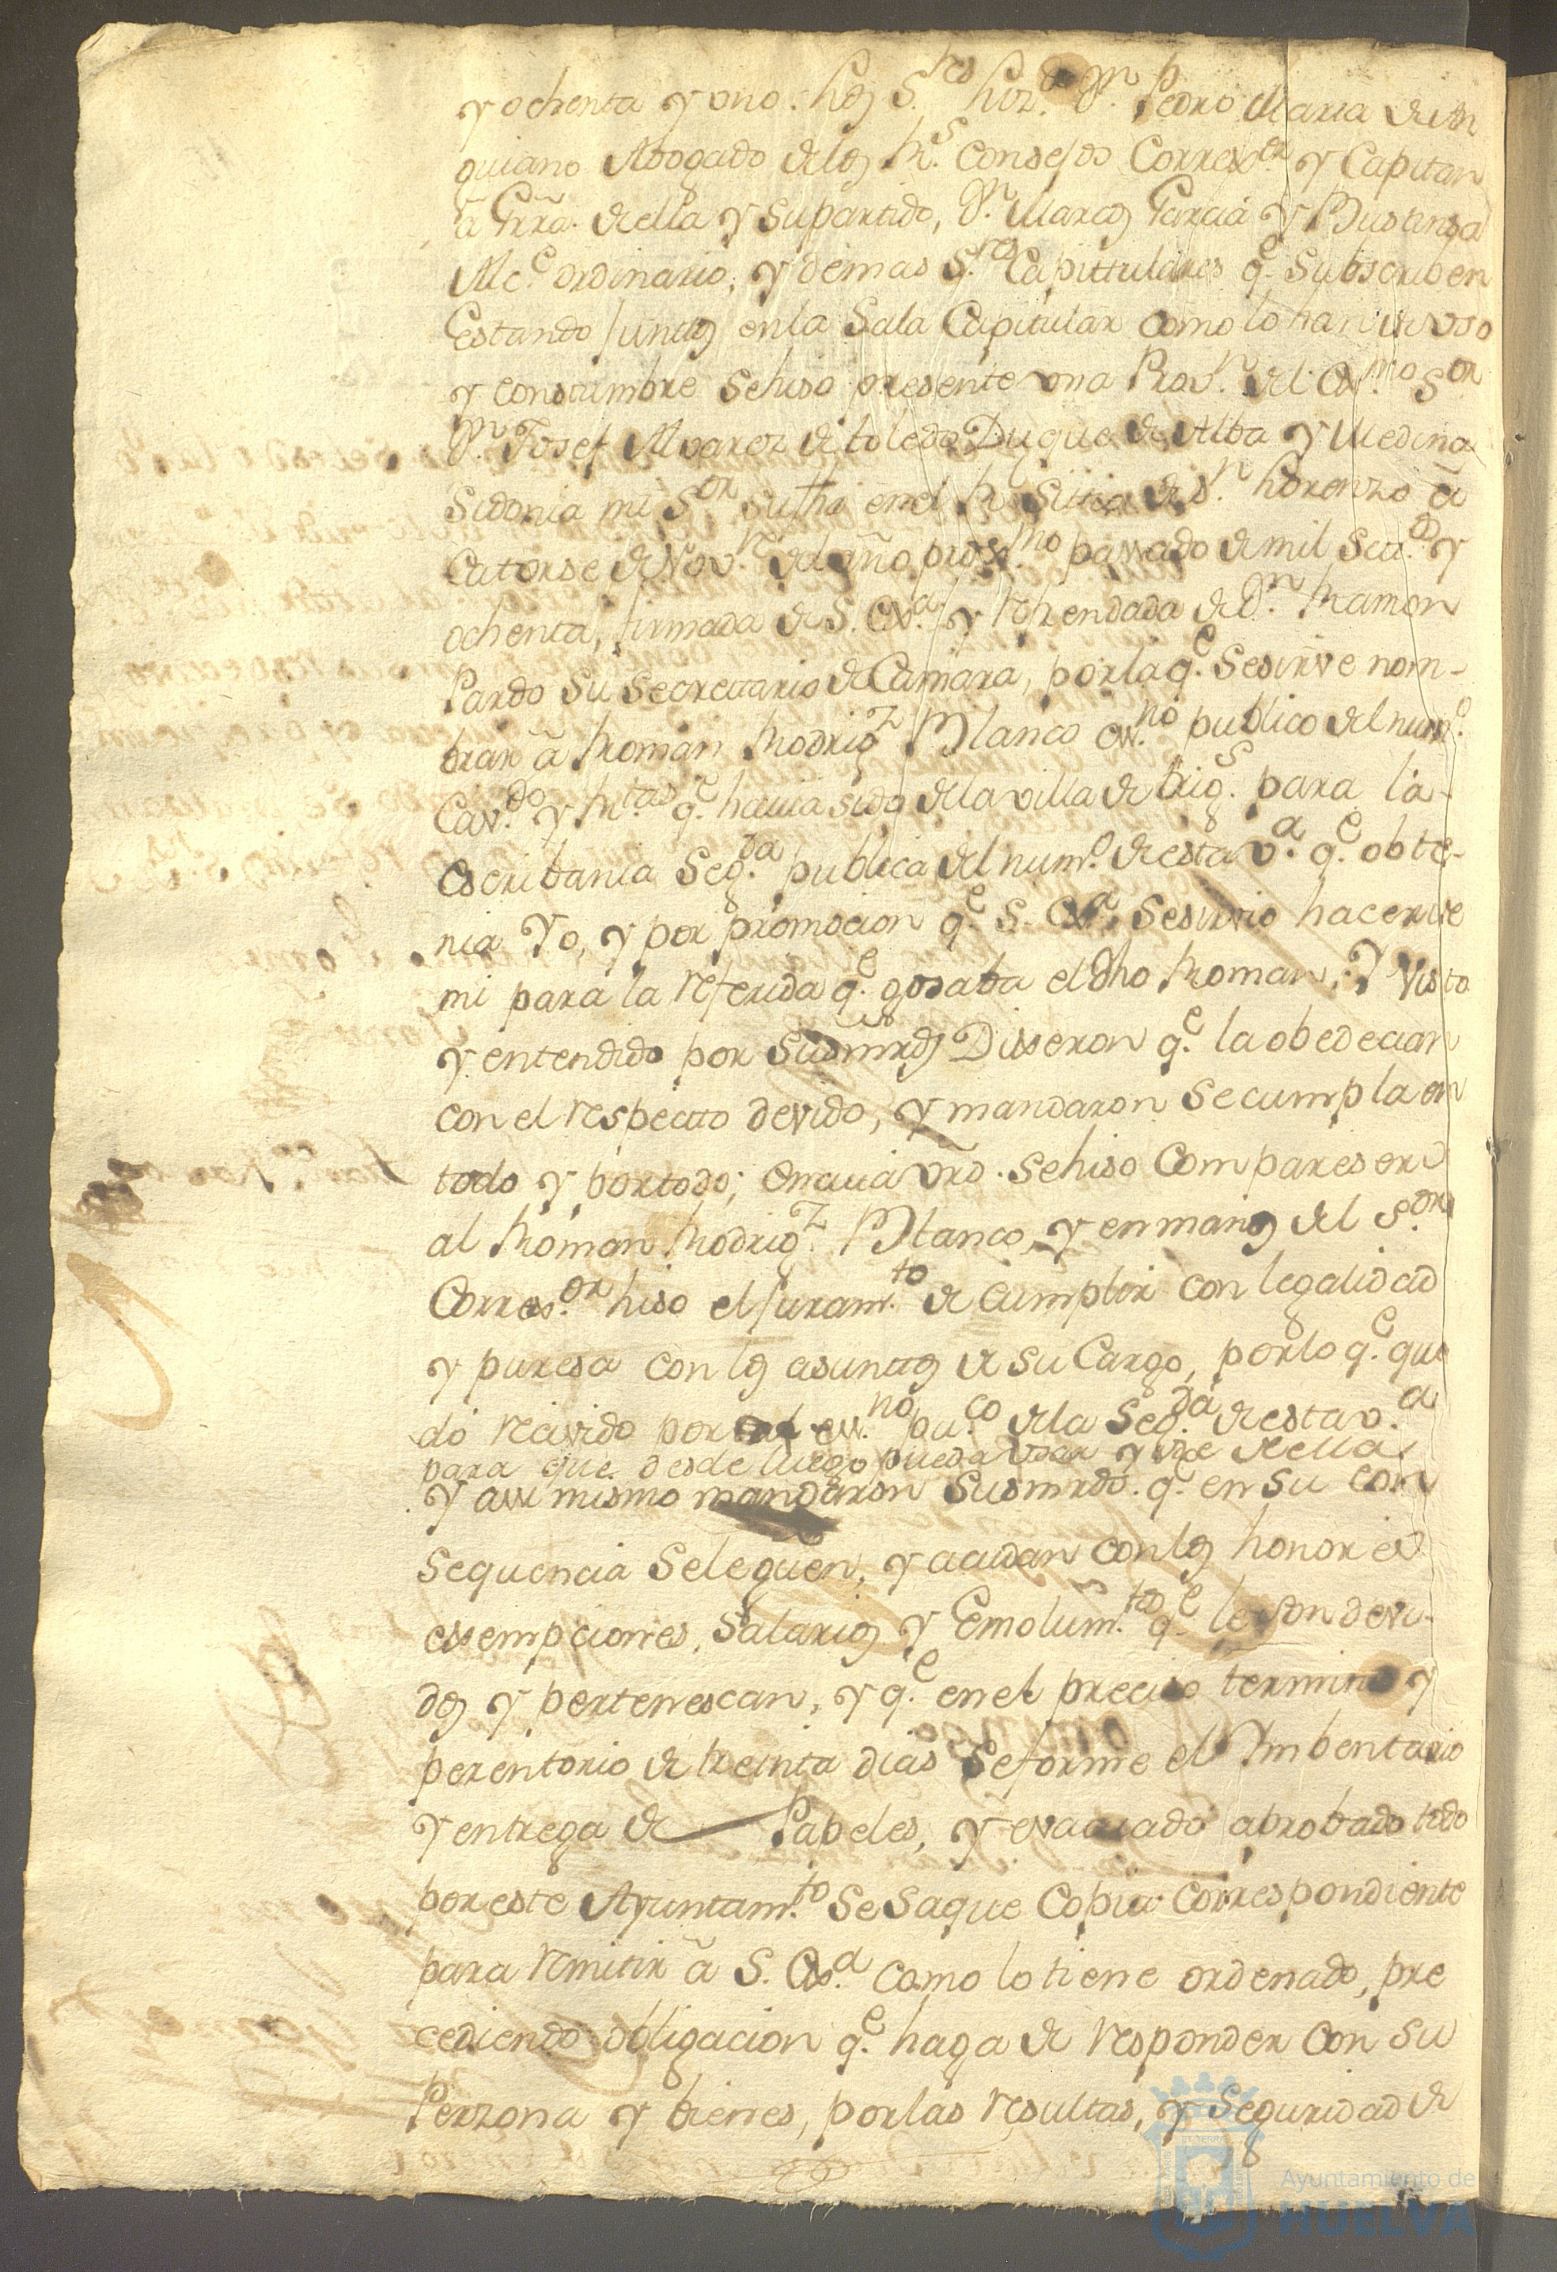 y ochenta y uno. los S.res Liz.do D.n Pedro Maria de An
guiano Abogado delos R.s Consejos Correx.or y Capitan
à Grra. de ella y su partido, D.n Marcos Garcia y Bustansa
Alc.e ordinario, y demas S.res Capittulares q.e subscriben
Estando juntos enla Sala Capitular como lo han de uso
y constumbre se hiso presente una Prov.n del Ex.mo S.or
D.n Josef Alvarez de toledo Duque de Alba y Medina
Sidonia mi S.or su fha en el R.l Sitio de S.n Lorenzo à
Catorse de Nov.re del año prox.mo passado de mil Set.os y
ochenta, firmada de S. Ex.a y rehendada de D.n Ramon
Pardo su Secretario de Camara, por la q.e se sirve nom-
brar à Roman Rodrig.z Blanco ess.no publico del num.o
Cav.do y R.tas q.e havia sido dela villa de trig.s para la
escribania Seg.da publica del num.o de esta v.a q.e obte-
nia Yo, y por promocion q.e S. Ex.a se sirvio hacerme
mi para la referida q.e gosaba el dho Roman; Y Visto
y entendido por Susmrds Dixeron q.e la obedecian
con el respecto devido, y mandaron se cumpla en
todo y por todo; en cuia vrd. se hiso Compareser
al Roman Rodrig.z Blanco, y en manos del S.or
Corres.or hiso el juram.to de cumplir con legalidad
y puresa con los asuntos de su Cargo, por lo q.e que
dó recivido por tal ess.no pu.co dela Seg.da de esta v.a
para que desde luego pueda usar y use de ella
y assi mismo mandaron Susmrds. q.e en su con
sequencia se le guen, y acudan con los honores
essempciones, Salarios y Emolum.tos q.e le son devi-
dos y pertenescan, y q.e en el preciso termino y
perentorio de treinta dias se forme el Imbentario
y entrega de Papeles, y evacuado aprobado todo
por este Ayuntam.to se saque Copia correspondiente
para remitir à S. Ex.a como lo tiene ordenado, pre
cediendo obligacion q.e haga de responder con su
Perzona y bienes, por las resultas, y Seguridad de
Ayuntamiento de
HUELVA